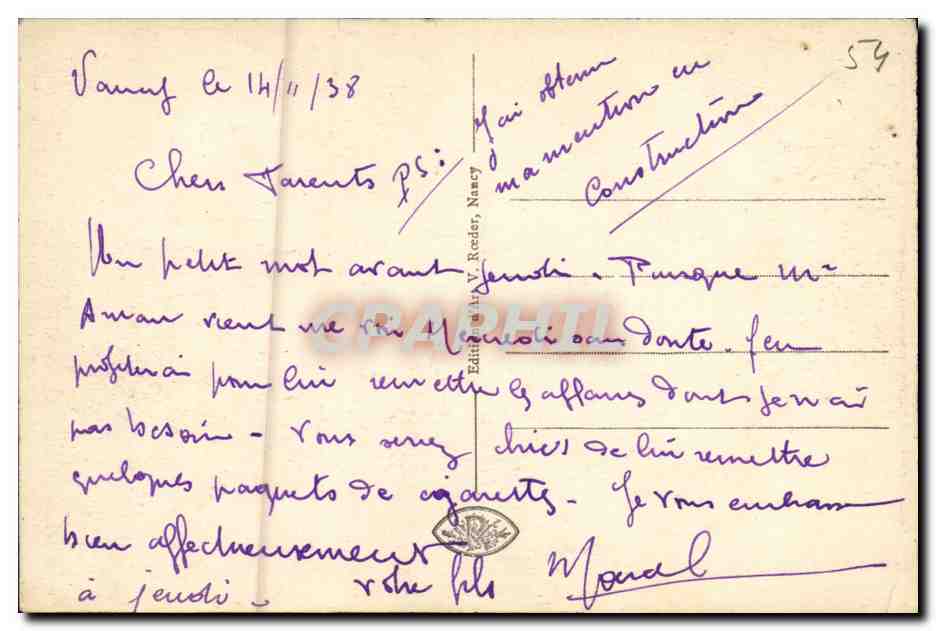 54
le 14/11/38
Chers Parents PS: J'ai obtenu
ma mention en
Construction
Un petit mot avant jeudi. Puisque Mr
Aman vient me voir Mercredi sans doute. J'en
profiterai pour lui remettre les affaires dont je n'ai
pas besoin - Vous serez chics de lui remettre
quelques paquets de cigarettes - Je vous embrasse
bien affectueusement
à jeudi - votre fils Marcel
Edition d'Art V. Rœder, Nancy
CPAPHIL